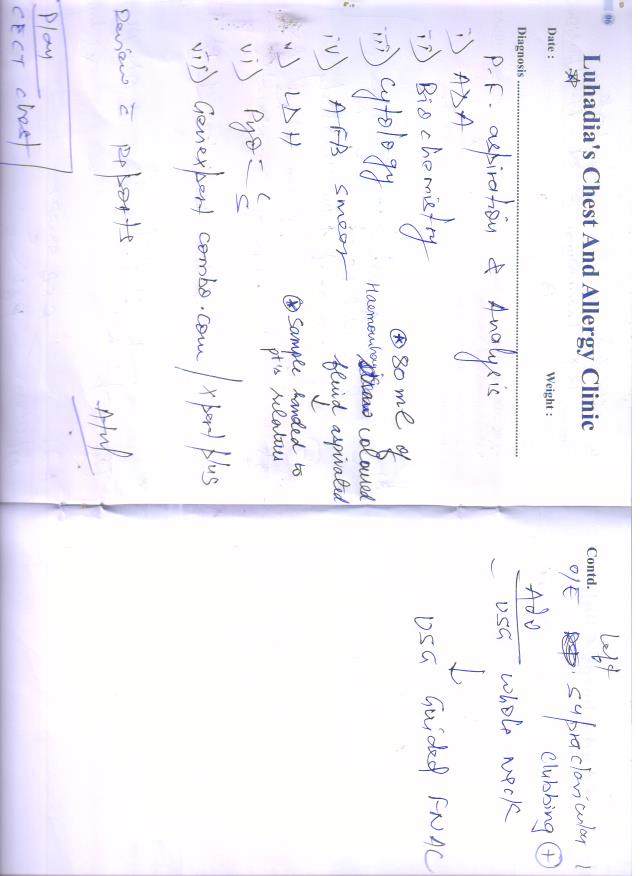 06
Luhadia's Chest And Allergy Clinic
Date :
Weight :
Diagnosis
P.F. aspiration & Analysis
i) ADA
ii) Biochemistry
iii) Cytology
iv) AFB smear
v) LDH
vi) Pyo C/S
vii) Genexpert combo.com / Xpert plus
80 ml of
Haemorrhagic coloured
fluid aspirated
↓
Sample handed to
pt's relatives
Review c̄ reports
Plan
CECT chest
Contd.
O/E Left supraclavicular
clubbing +
Adv
– USG whole neck
↓
USG Guided FNAC